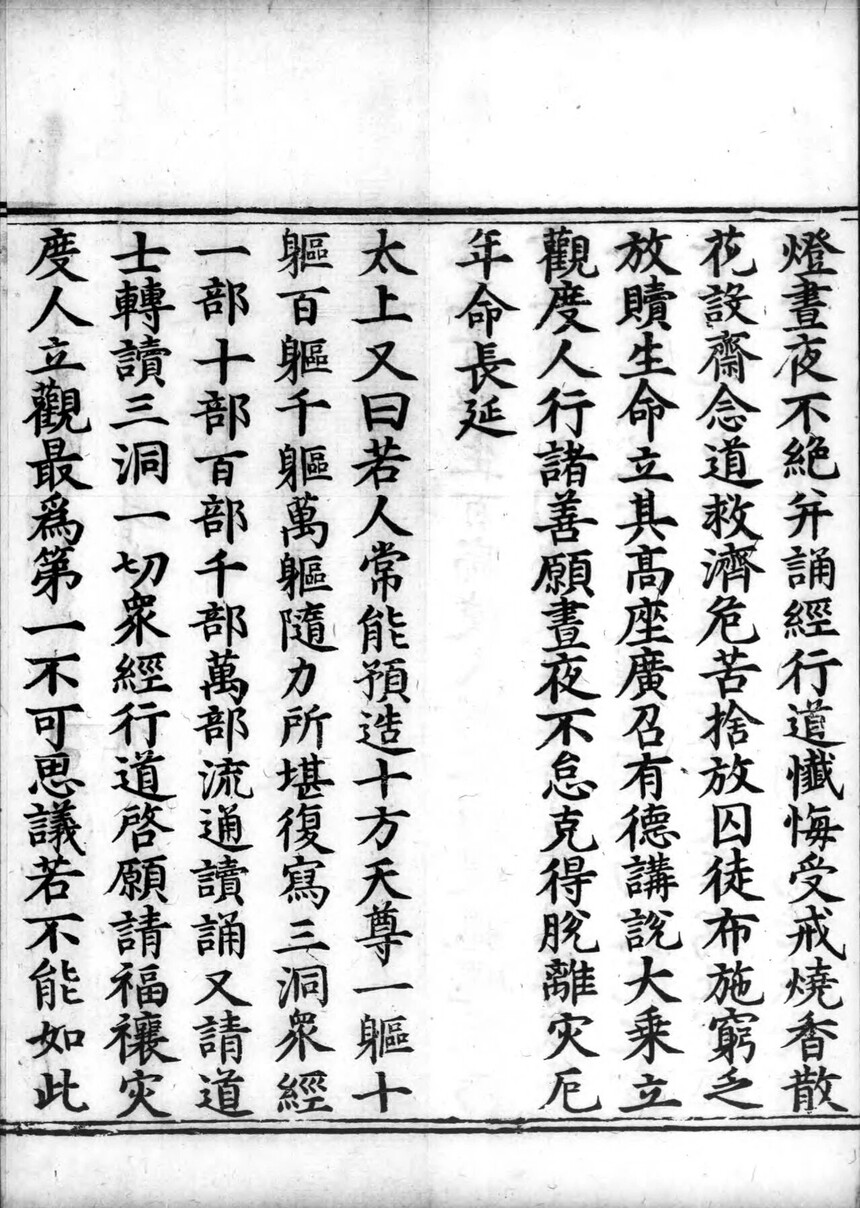 燈晝夜不絶并誦經行道懺悔受戒燒香散
花設齋念道救濟危苦捨放囚徒布施窮乏
放贖生命立其高座廣召有德講説大乗立
觀度人行諸善願晝夜不怠克得脫離灾厄
年命長延
太上又曰若人常能預造十方天尊一軀十
軀百軀千軀萬軀隨力所堪復寫三洞衆經
一部十部百部千部萬部流通讀誦又請道
士轉讀三洞一切衆經行道啓願請福禳灾
度人立觀最爲第一不可思議若不能如此